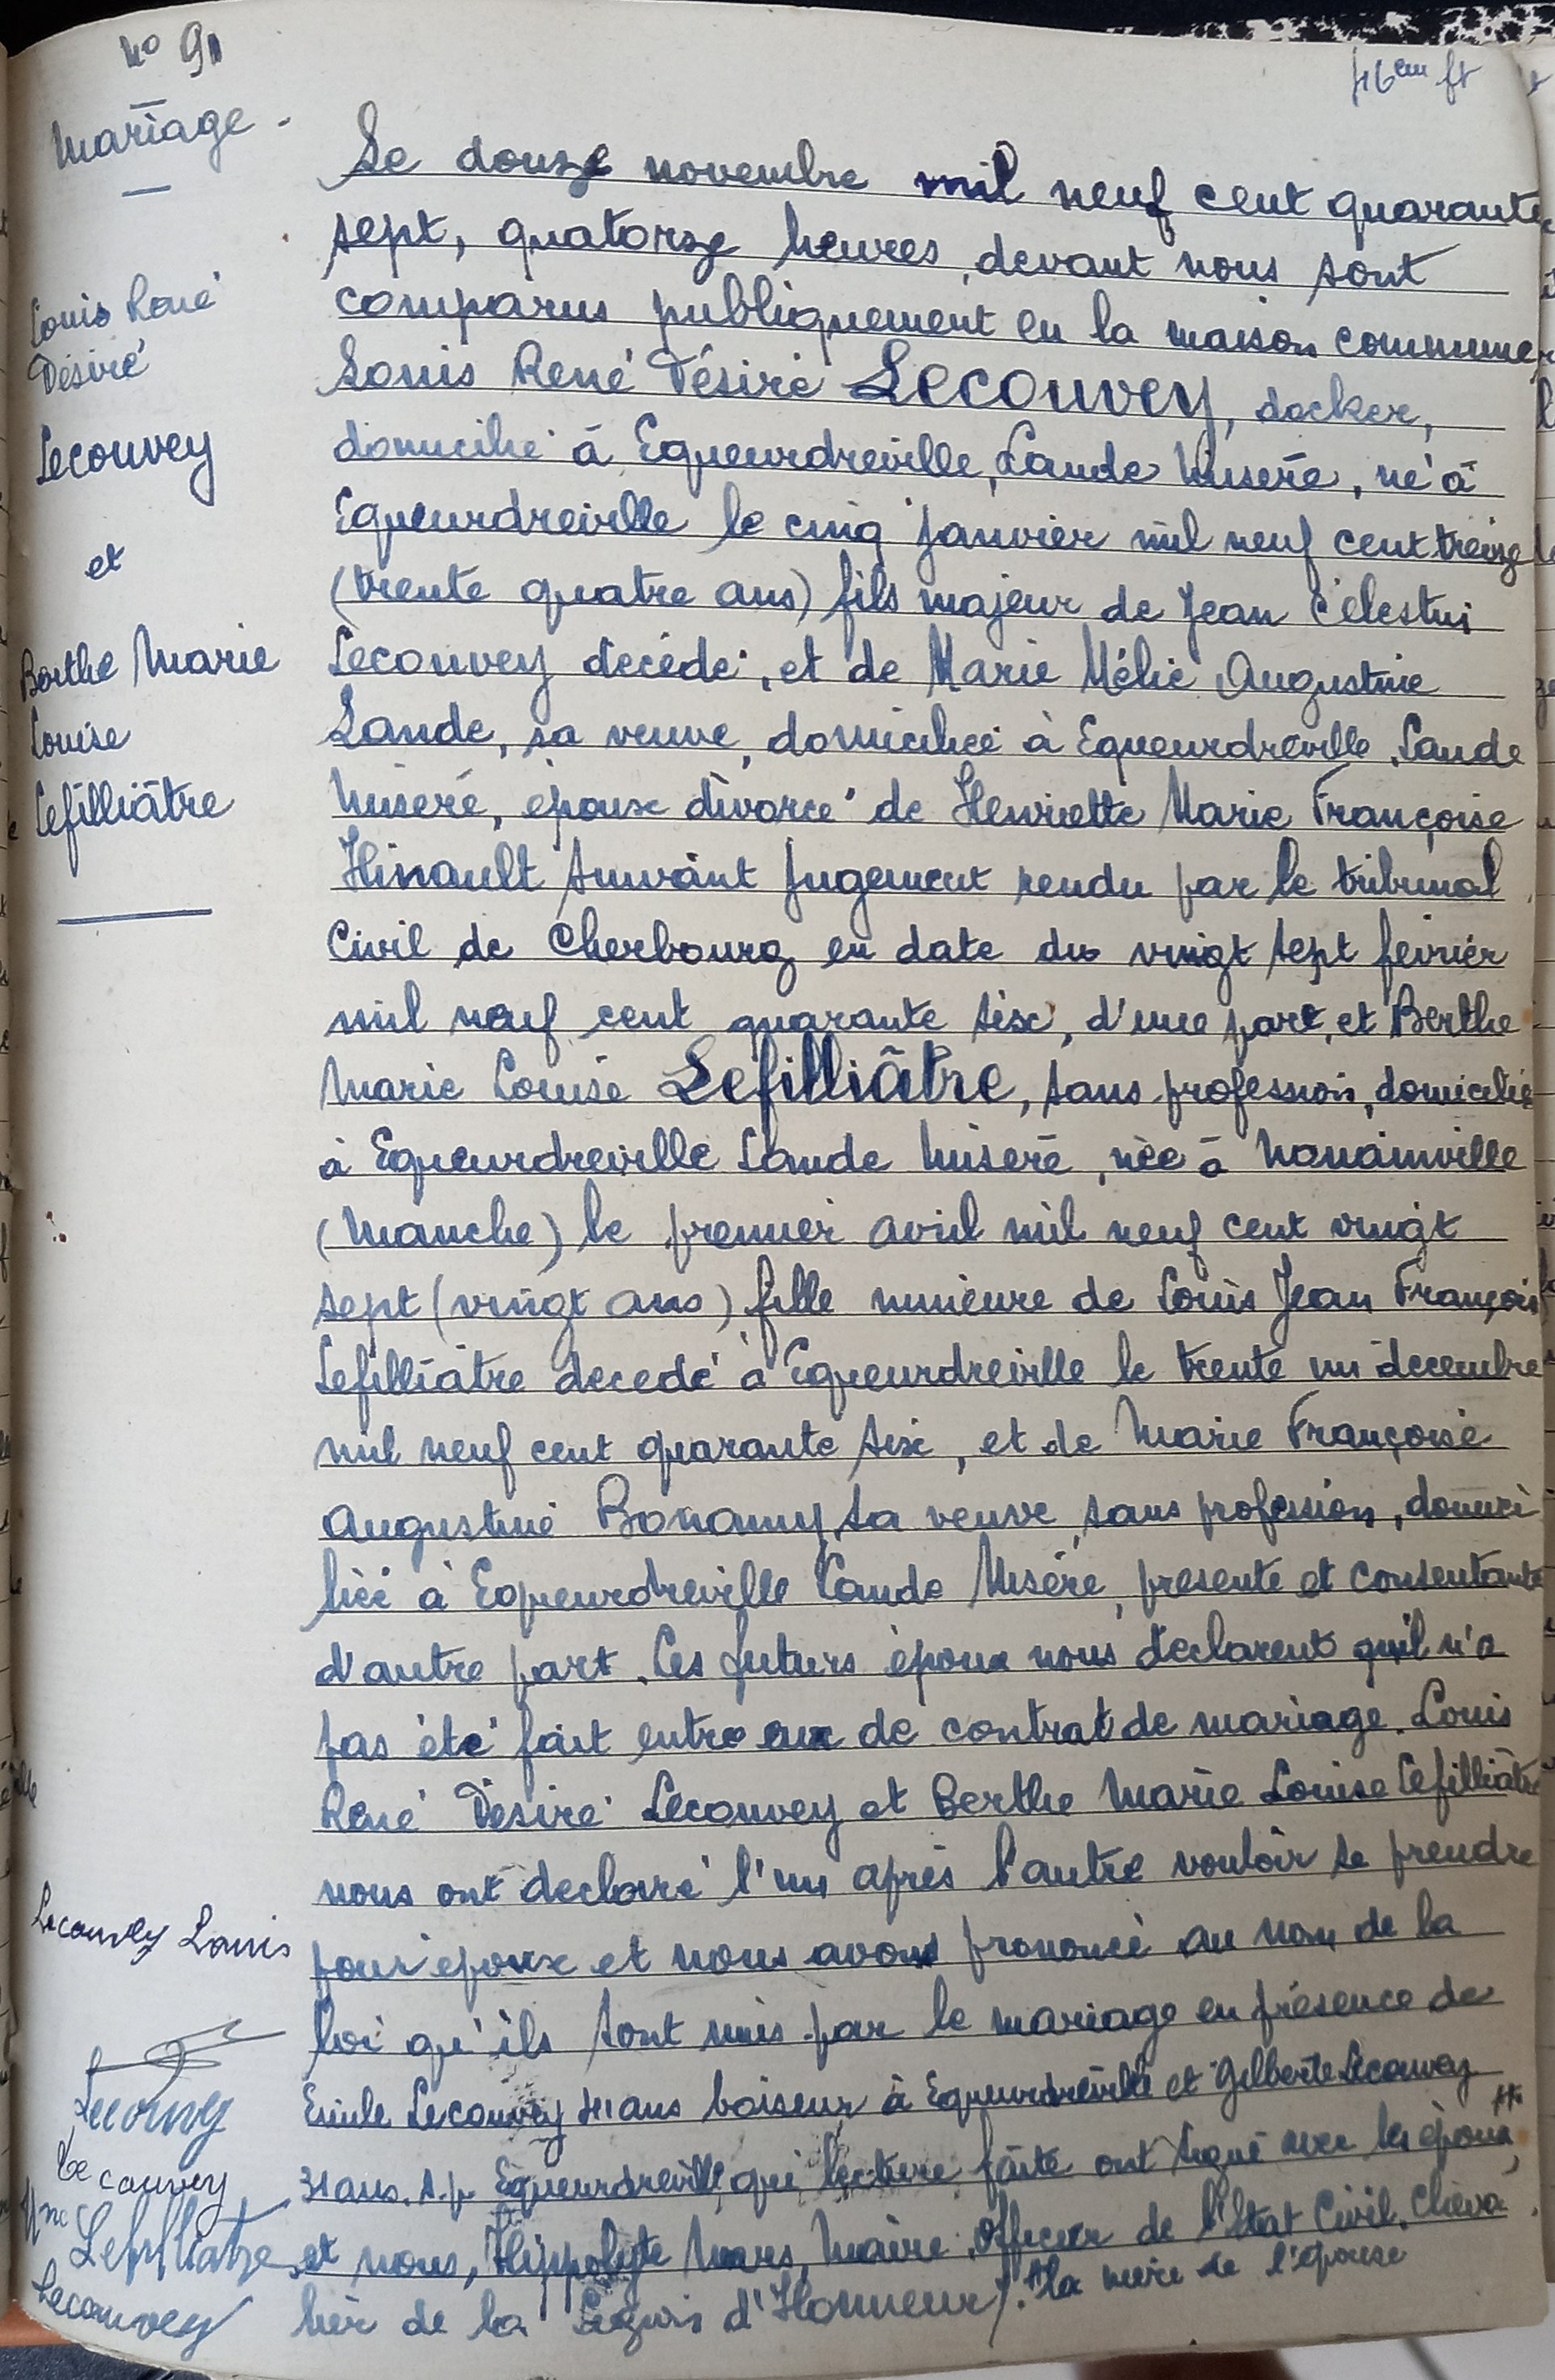 n° 91
46em ft
Mariage -
Le douze novembre mil neuf cent quarante
sept, quatorze heures, devant nous sont
comparus publiquement en la maison commune,
Louis René Désiré Lecouvey, docker,
domicilié à Equeurdreville, Lande Miséré, né à
Equeurdreville le cinq janvier mil neuf cent treize
(trente quatre ans) fils majeur de Jean Célestin
Lecouvey décédé, et de Marie Mélie Augustine
Lande, sa veuve, domiciliée à Equeurdreville, Lande
Miséré, époux divorcé de Henriette Marie Françoise
Hinault suivant jugement rendu par le tribunal
Civil de Cherbourg en date du vingt sept février
mil neuf cent quarante six, d'une part, et Berthe
Marie Louise Lefilliâtre, sans profession, domiciliée
à Equeurdreville Lande Miséré, née à Nouainville
(Manche) le premier avril mil neuf cent vingt
sept (vingt ans) fille mineure de Louis Jean François
Lefilliâtre décédé à Equeurdreville le trente un décembre
mil neuf cent quarante six, et de Marie Françoise
Augustine Bonamy, sa veuve, sans profession, domici
liée à Equeurdreville Lande Miséré, présente et consentante
d'autre part. Les futurs époux nous déclarent qu'il n'a
pas été fait entre eux de contrat de mariage. Louis
René Désiré Lecouvey et Berthe Marie Louise Lefilliâtre
nous ont déclaré l'un après l'autre vouloir se prendre
pour époux et nous avons prononcé au nom de la
loi qu'ils sont unis par le mariage en présence de
Emile Lecouvey 41 ans boiseur à Equeurdreville et Gilberte Lecouvey
31 ans. s.p. Equeurdreville, qui lecture faite ont signé avec les époux,
et nous, Hippolyte Mars, Maire, Officier de l'Etat Civil. Cheva
lier de la Légion d'Honneur/. la mère de l'épouse
Louis René
Désiré
Lecouvey
et
Berthe Marie
Louise
Lefilliâtre
Lecouvey Louis
Lecouvey
Le couvey
Mme Lefilliatre
Lecouvey